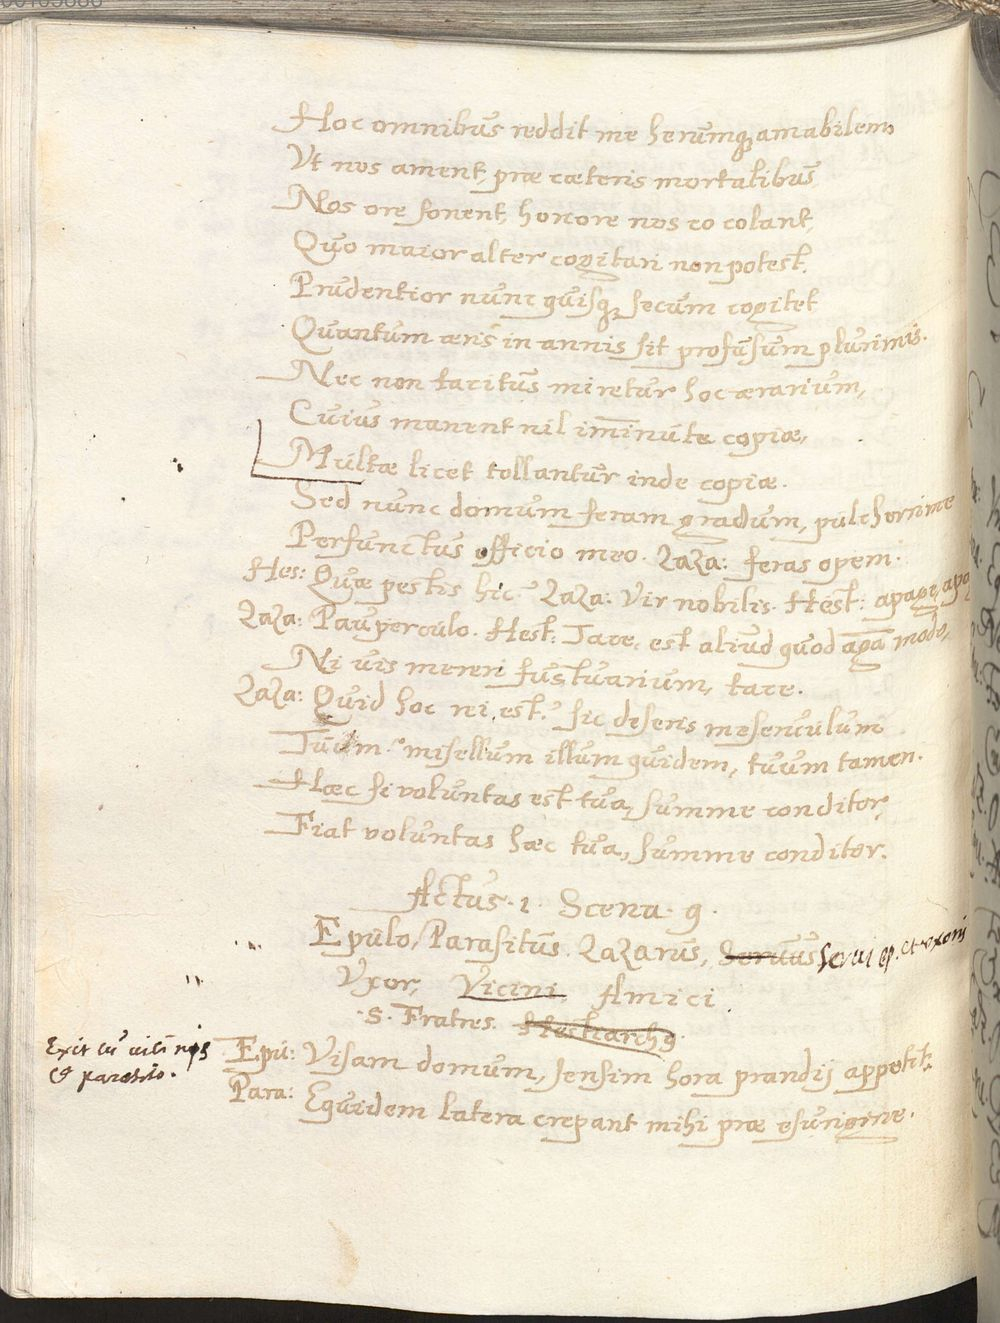 Hoc omnibus reddit me herumq; amabilem,
Vt nos ament, præ cæteris mortalibus,
Nos ore sonent, honore nos eo colant,
Quo maior alter cogitari non potest.
Prudentior nunc quisq; secum cogitet
Quantum æris in annis sit profusum plurimis.
Nec non tacitus miretur hoc ærarium,
Cuius manent nil im̄inutæ copiæ,
Multæ licet tollantur inde copiæ.
Sed nunc domum feram gradum, pulcherrime
Perfunctus officio meo. Laza: feras opem.
Hes: Quæ pestis hic? Laza: Vir nobilis. Hest: apage, apa
Laza: Pauperculo. Hest: Tace, est aliud quod agā modo,
Ni uis mereri fustuarium, tace.
Laza: Quid hoc rei est? sic deseris meserculum
Tuum? misellum illum quidem, tuum tamen.
Hæc si voluntas est tua, summe conditor,
Fiat voluntas hæc tua, summe conditor.
Actus. 1. Scena. 9.
Epulo, Parasitus. Lazarus, Seruus Serui ep. et uxoris
Vxor, Vicini Amici
.5. Fratres. Hestiarchꝰ
Exit cū
& parasito.
Epu: Visam domum, sensim hora prandij appetit.
Para: Equidem latera crepant mihi præ esurigine.